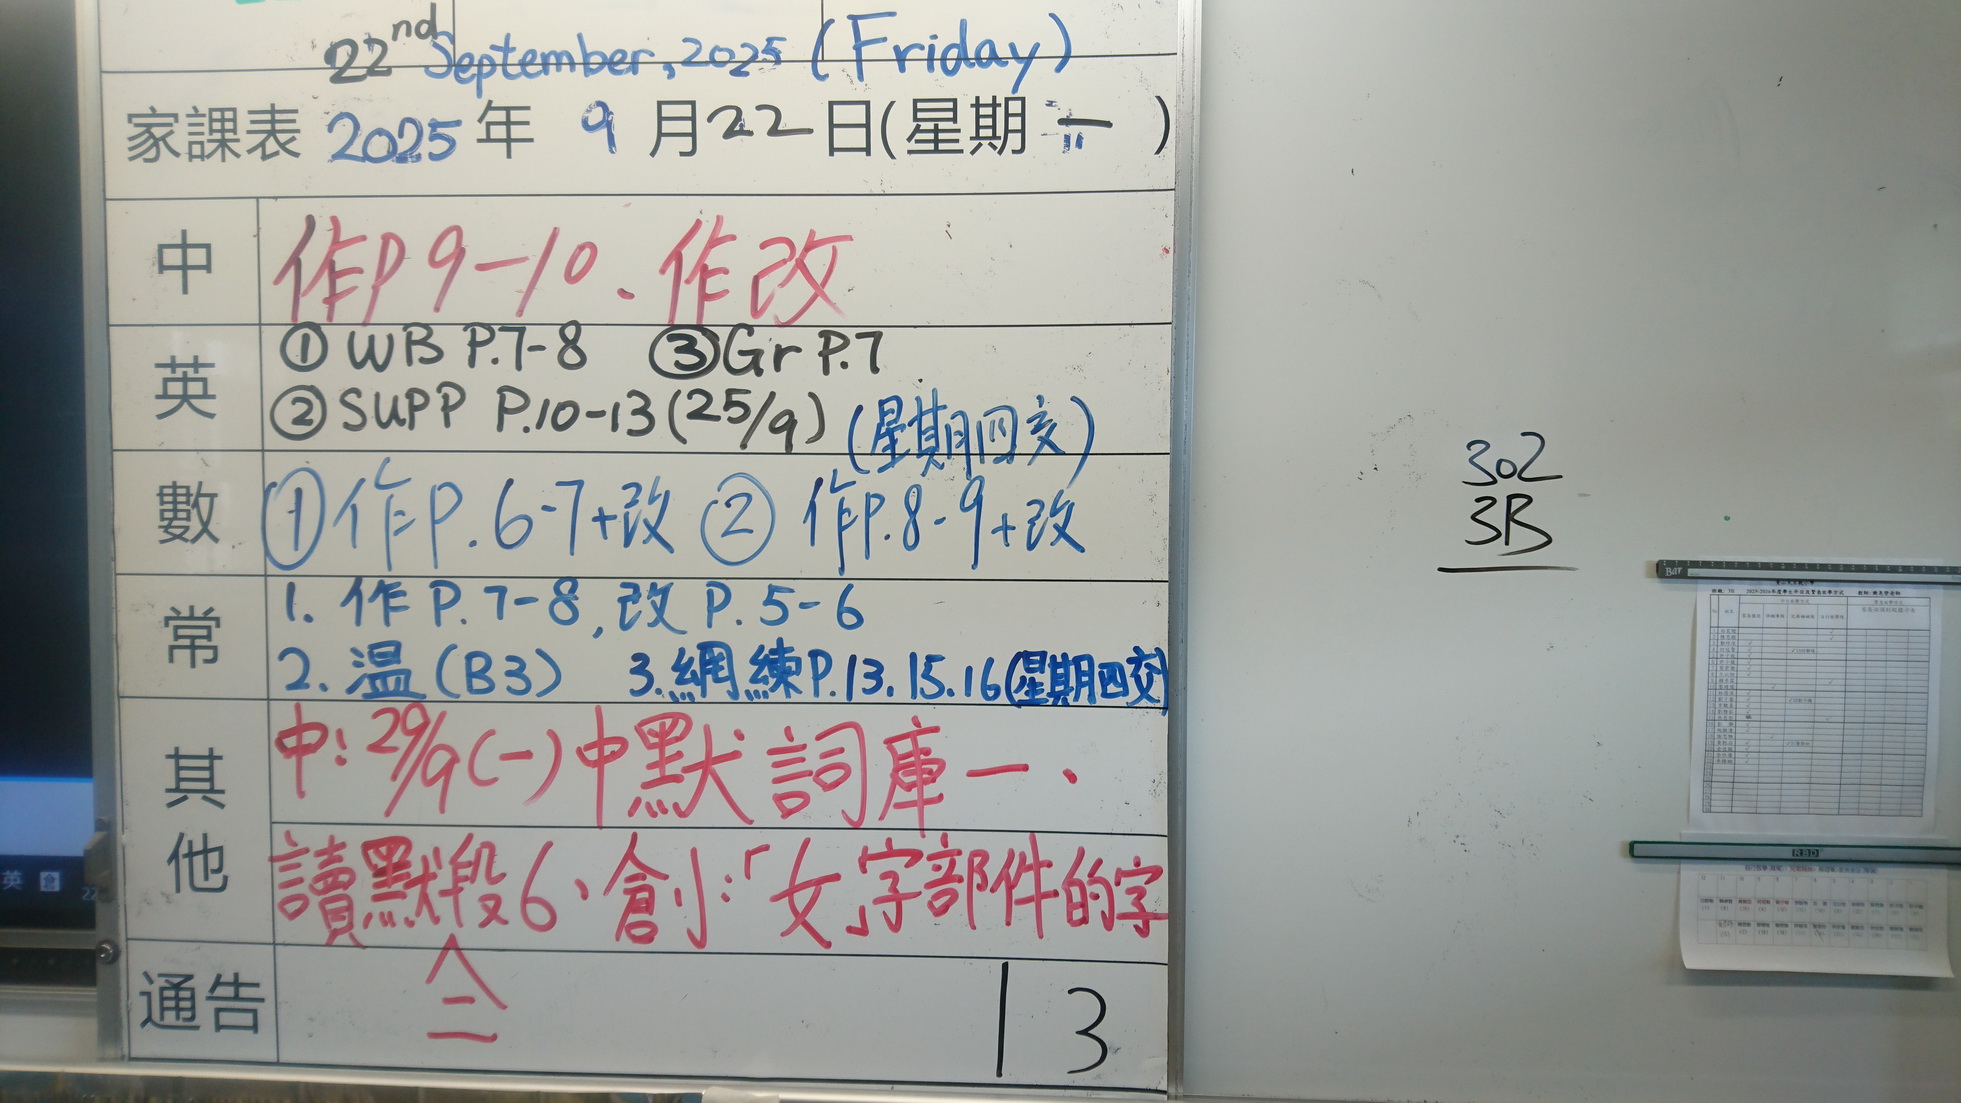 22nd September, 2025 (Friday)
家課表 2025年 9月22日(星期一)
中 作P9-10、作改
英 ① WB P.7-8 ③Gr P.7
② SUPP P.10-13(25/9) (星期四交)
數 ①作P.6-7+改 ② 作P.8-9+改
常 1. 作P.7-8,改P.5-6
2. 温(B3) 3.網練P.13.15.16(星期四交)
其他 中:29/9(一)中默詞庫一、
讀默段6、創小:「女」字部件的字
二
通告 13
302
3B
英
22
BIT
RBD